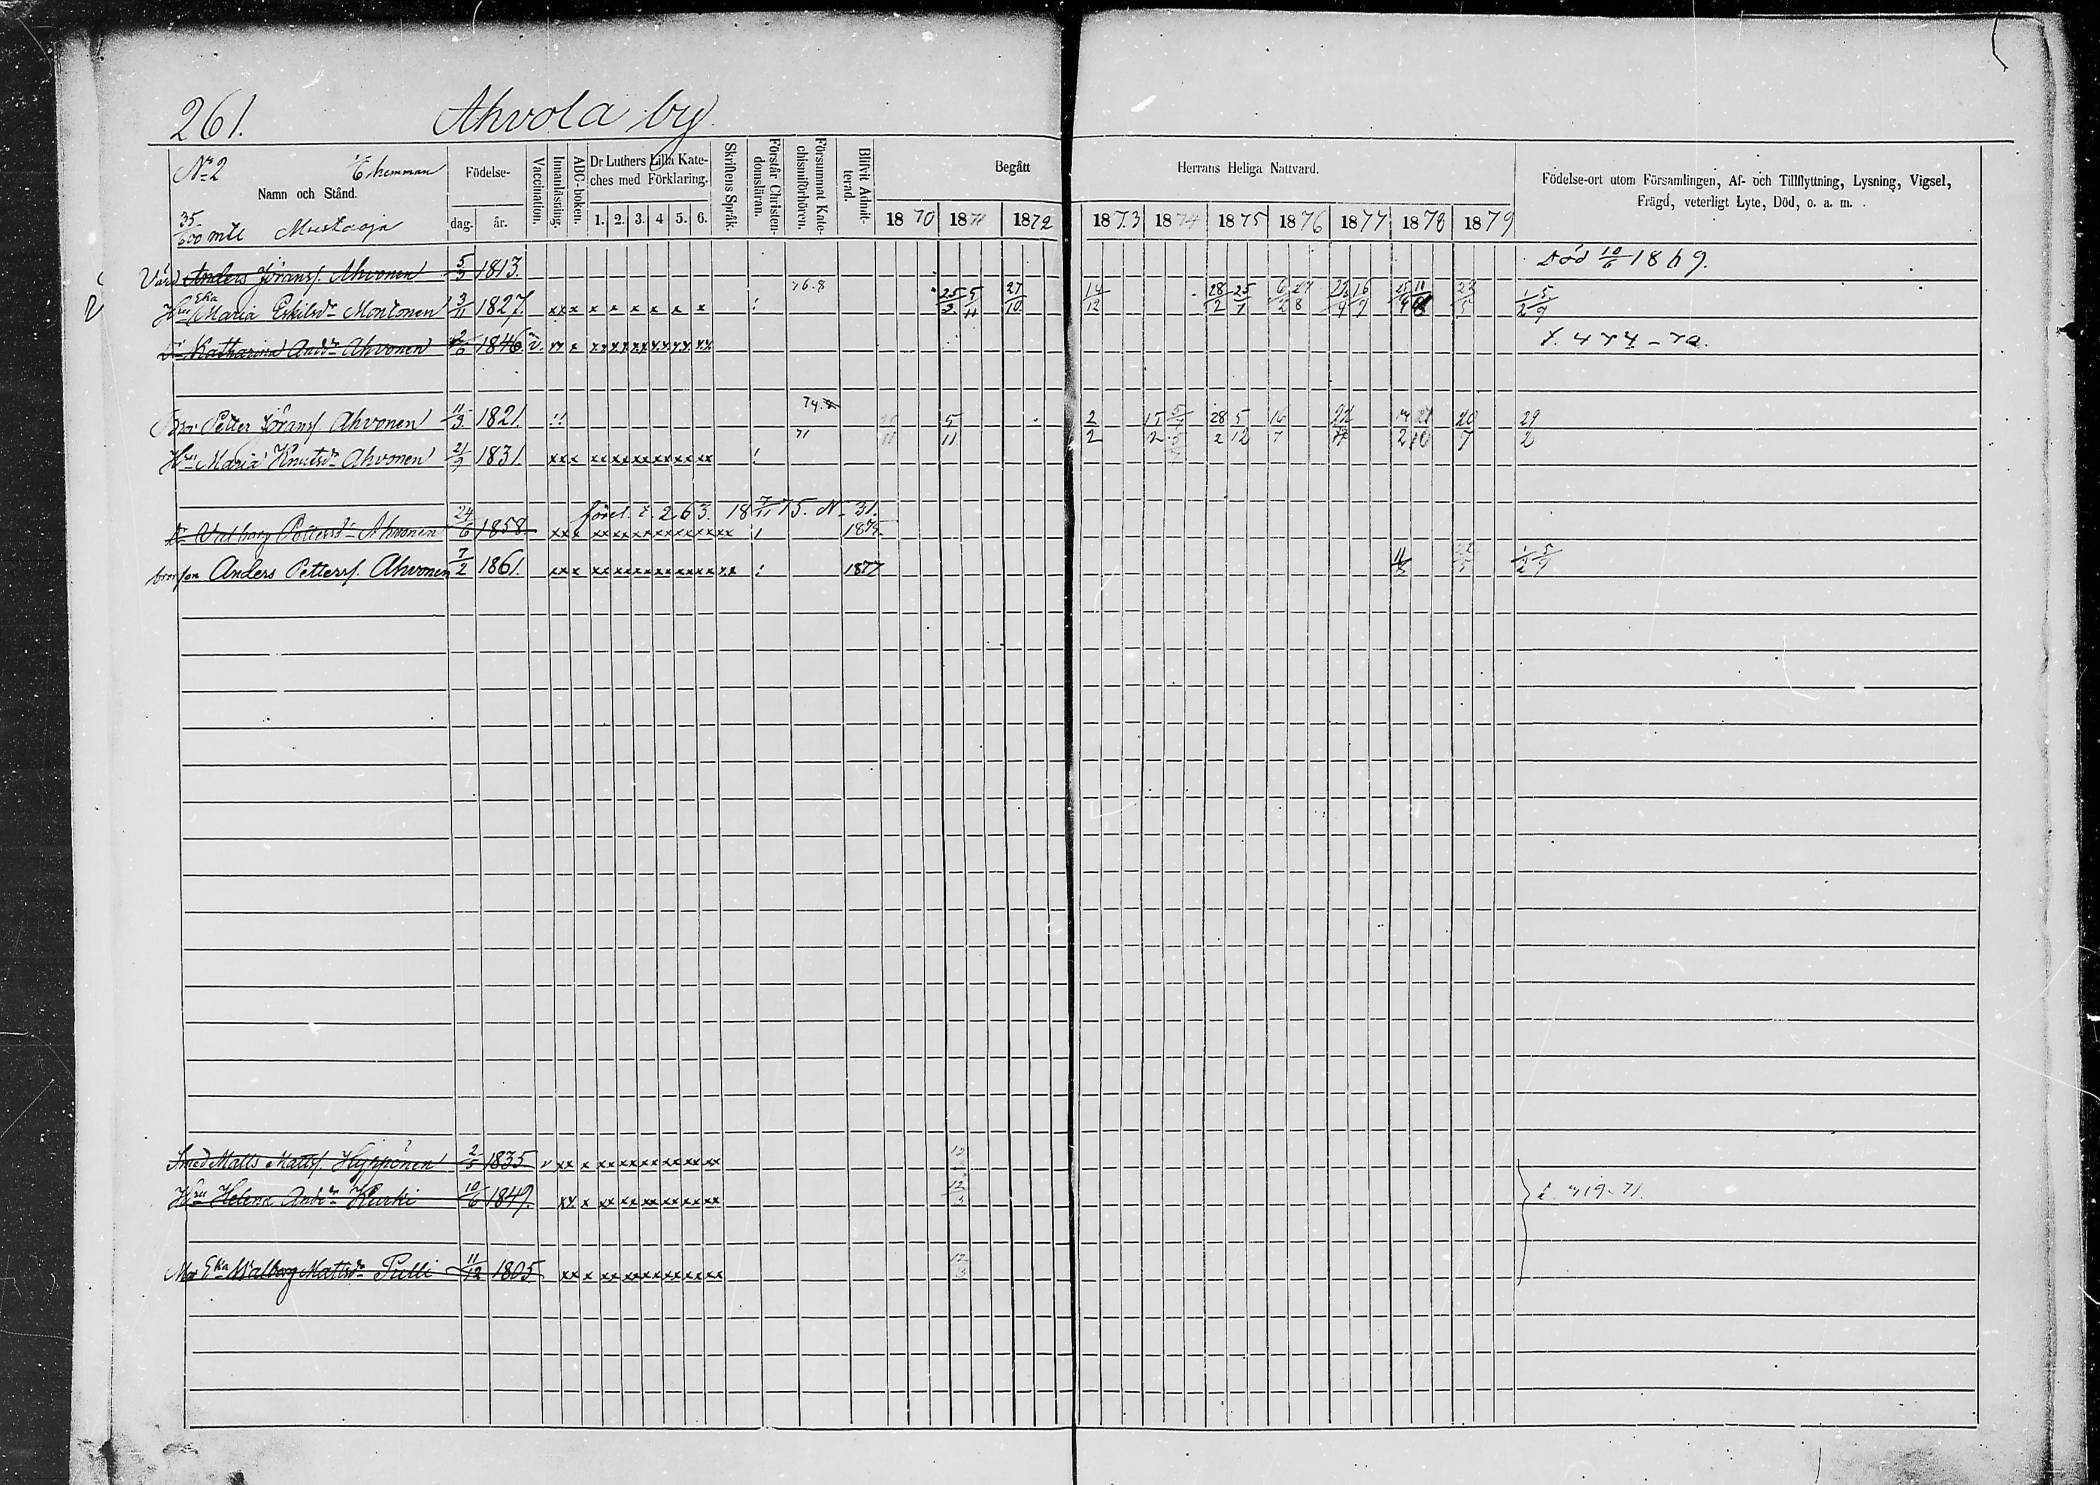 261. Ahvola by.
No 2 hemman
Namn och Stånd.
35/600 mtl Mustaoja
Födelse-
dag. år.
Vaccination.
Innanläsning.
ABC-boken.
Dr Luthers Lilla Kate-
ches med Förklaring.
1. 2. 3. 4 5. 6.
Skriftens Språk.
Förstår Christen-
domsläran.
Försummat Kate-
chismiförhören.
Blifvit Admit-
terad.
Begått Herrans Heliga Nattvard.
1870 1871 1872 1873 1874 1875 1876 1877 1878 1879
Födelse-ort utom Församlingen, Af- och Tillflyttning, Lysning, Vigsel,
Frägd, veterligt Lyte, Död, o. a. m.
Värd Anders Göransf. Ahvonen 1813. Död 10/6 1869.
Hru Eka Maria Eskilsdr Montonen 3/11 1827. xx x x x x x x x 76.8 25/3 5/11 27/10 14/12 28/2 25/7 6/2 27/8
Dr Katharina Andrs Ahvonen 1846. v. xx x xx xx xx xx xx xx t. 474-70.
Bror Petter Göransf Ahvonen 11/3 1821. 74. 5/11 2/2 28/2 5/12 16/7 20/7 29/2
Hru Maria Knutsdr Ahvonen 21/9 1831. xx x xx xx xx xx xx xx 71
förel. t. 263. 18 7/11 75. N. 31.
Dr Valborg Pettersdr Ahvonen 24/6 1858. xx x xx xx xx xx xx xx xx 1875.
brorson Anders Pettersf. Ahvonen 7/2 1861. xx x xx xx xx xx xx xx xx 1877
Smed Matts Mattsf. Hyppönen 2/5 1835 v xx x xx xx xx xx xx xx 12/3
Hru Helena Andrsdr Kurki 10/6 1849. xx x xx xx xx xx xx xx 12/3 t. 719-71.
Mor Eka Walborg Mattsdr Pulli 11/12 1805 xx x xx xx xx xx xx xx 12/3